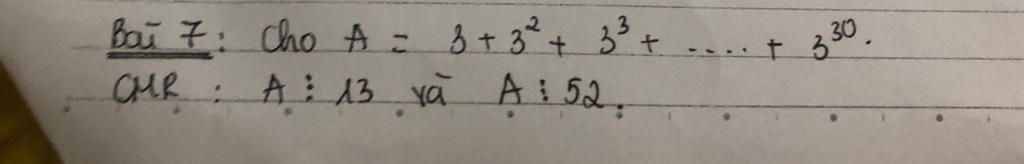 Bài 7: Cho A = 3 + 3² + 3³ + ..... + 3³⁰.
CMR : A ⋮ 13 và A ⋮ 52.